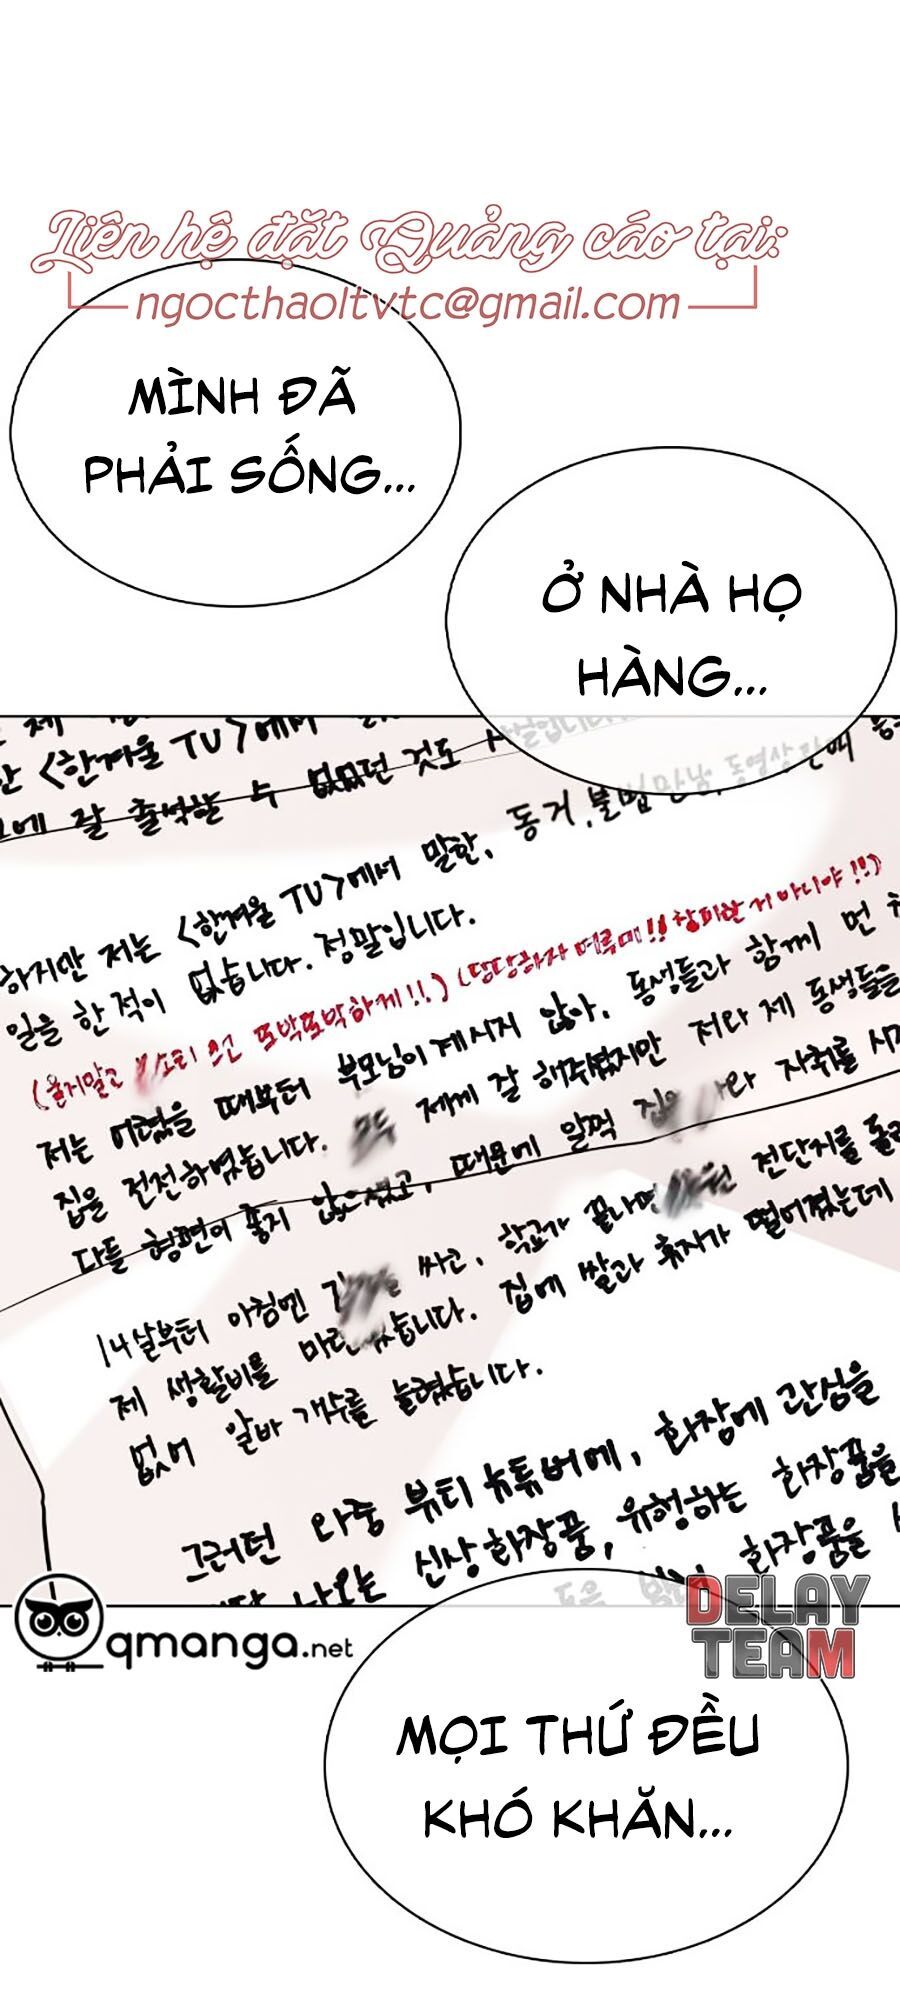 Liên hệ đặt Quảng cáo tại:
ngocthaoltvtc@gmail.com
MÌNH ĐÃ
PHẢI SỐNG...
Ở NHÀ HỌ
HÀNG...
제
<한겨울 TV>에서
에 잘 출석할 수 없었던 것도
하지만 저는 <한겨울 TV>에서 말한, 동거, 불법만남, 동영상
일을 한 적이 없습니다. 정말입니다.
(울지말고 쓰고 또박또박하게!!) (당당하자 여루미!! 창피한 거 아니야!!)
저는 어렸을 때부터 부모님이 계시지 않아, 동생들과 함께 먼
집을 전전하였습니다. 모두 제게 잘 해주셨지만 저와 제 동생들을
다들 형편이 좋지 않으셨고, 때문에 일찍 나와 자취를
14살부터 아침엔 싸고, 학교가 끝나면 전단지를
제 생활비를 마련했습니다. 집에 쌀과 휴지가 떨어졌는데
없어 알바 개수를 늘렸습니다.
그러던 와중 뷰티 뉴튜버에, 화장에 관심을
나오는 신상화장품, 유행하는 화장품을
돈은 화장품을
qmanga.net
DELAY
TEAM
MỌI THỨ ĐỀU
KHÓ KHĂN...